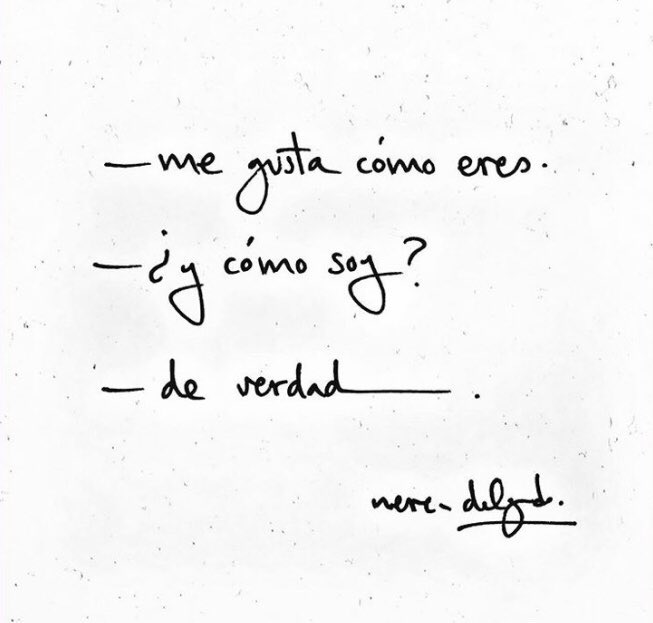 — me gusta cómo eres.
— ¿y cómo soy?
— de verdad.
nere delgado.